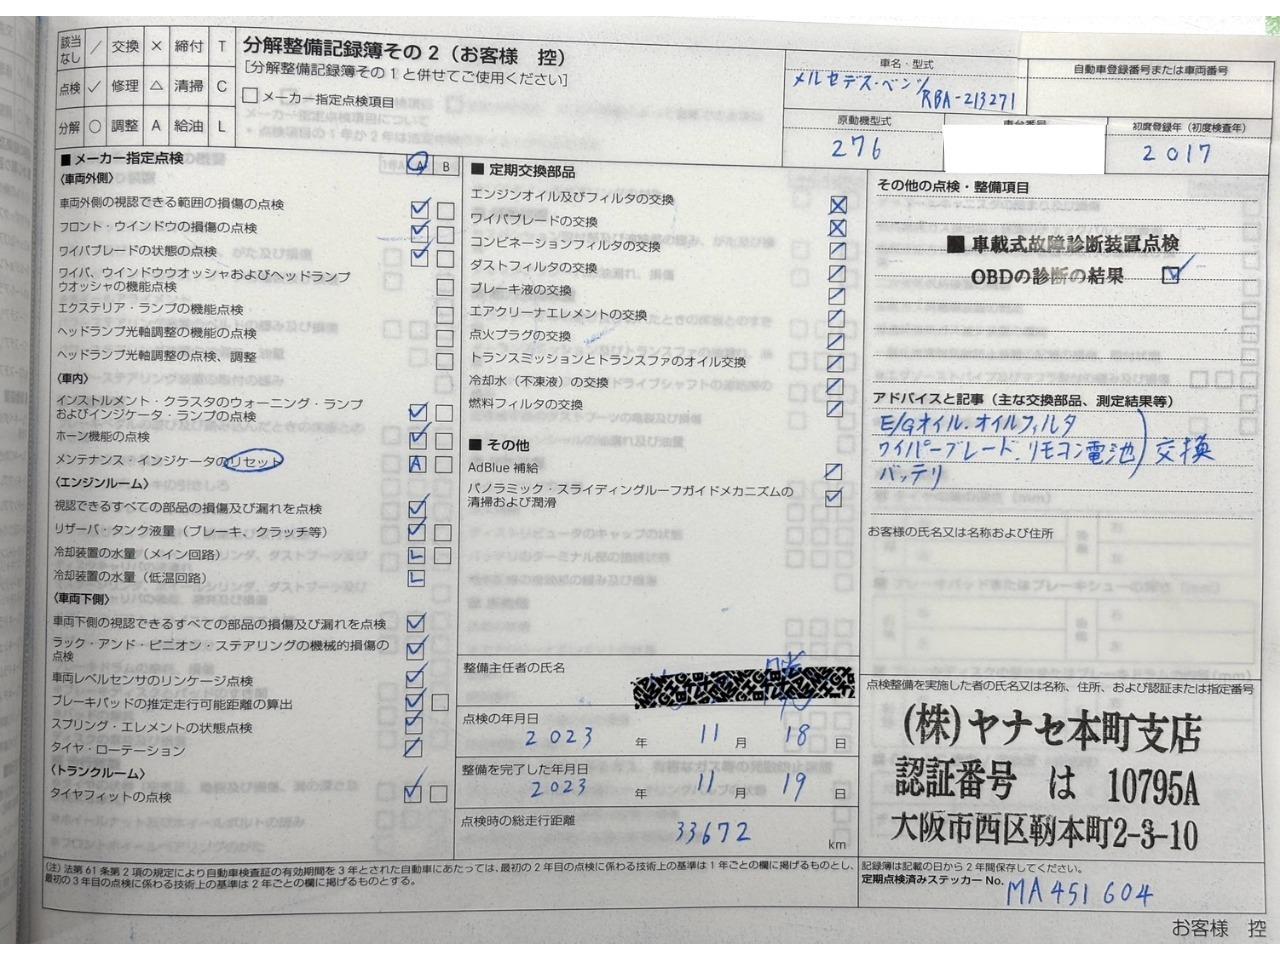 該当なし ／ 交換 × 締付 T
点検 ✓ 修理 △ 清掃 C
分解 ○ 調整 A 給油 L
分解整備記録簿その2（お客様　控）
[分解整備記録簿その1と併せてご使用ください]
□ メーカー指定点検項目
車名・型式
メルセデス・ベンツ/RBA-213271
自動車登録番号または車両番号
原動機型式
276
車台番号
初度登録年（初度検査年）
2017
■ メーカー指定点検 A B
〈車両外側〉
車両外側の視認できる範囲の損傷の点検
フロント・ウインドウの損傷の点検
ワイパブレードの状態の点検
ワイパ、ウインドウウオッシャおよびヘッドランプ
ウオッシャの機能点検
エクステリア・ランプの機能点検
ヘッドランプ光軸調整の機能の点検
ヘッドランプ光軸調整の点検、調整
〈車内〉
インストルメント・クラスタのウォーニング・ランプ
およびインジケータ・ランプの点検
ホーン機能の点検
メンテナンス・インジケータのリセット A
〈エンジンルーム〉
視認できるすべての部品の損傷及び漏れを点検
リザーバ・タンク液量（ブレーキ、クラッチ等）
冷却装置の水量（メイン回路） L
冷却装置の水量（低温回路） L
〈車両下側〉
車両下側の視認できるすべての部品の損傷及び漏れを点検
ラック・アンド・ピニオン・ステアリングの機械的損傷の
点検
車両レベルセンサのリンケージ点検
ブレーキパッドの推定走行可能距離の算出
スプリング・エレメントの状態点検
タイヤ・ローテーション
〈トランクルーム〉
タイヤフィットの点検
■ 定期交換部品
エンジンオイル及びフィルタの交換
ワイパブレードの交換
コンビネーションフィルタの交換
ダストフィルタの交換
ブレーキ液の交換
エアクリーナエレメントの交換
点火プラグの交換
トランスミッションとトランスファのオイル交換
冷却水（不凍液）の交換
燃料フィルタの交換
■ その他
AdBlue 補給
パノラミック・スライディングルーフガイドメカニズムの
清掃および潤滑
整備主任者の氏名
点検の年月日
2023 年 11 月 18 日
整備を完了した年月日
2023 年 11 月 19 日
点検時の総走行距離
33672 km
その他の点検・整備項目
■ 車載式故障診断装置点検
OBDの診断の結果 ✓
アドバイスと記事（主な交換部品、測定結果等）
E/Gオイル.オイルフィルタ
ワイパーブレード.リモコン電池）交換
バッテリ
お客様の氏名又は名称および住所
点検整備を実施した者の氏名又は名称、住所、および認証または指定番号
(株)ヤナセ本町支店
認証番号　は　10795A
大阪市西区靱本町2-3-10
（注）法第61条第2項の規定により自動車検査証の有効期間を3年とされた自動車にあたっては、最初の2年目の点検に係わる技術上の基準は1年ごとの欄に掲げるものとし、
最初の3年目の点検に係わる技術上の基準は2年ごとの欄に掲げるものとする。
記録簿は記載の日から2年間保存してください。
定期点検済みステッカーNo. MA451604
お客様　控